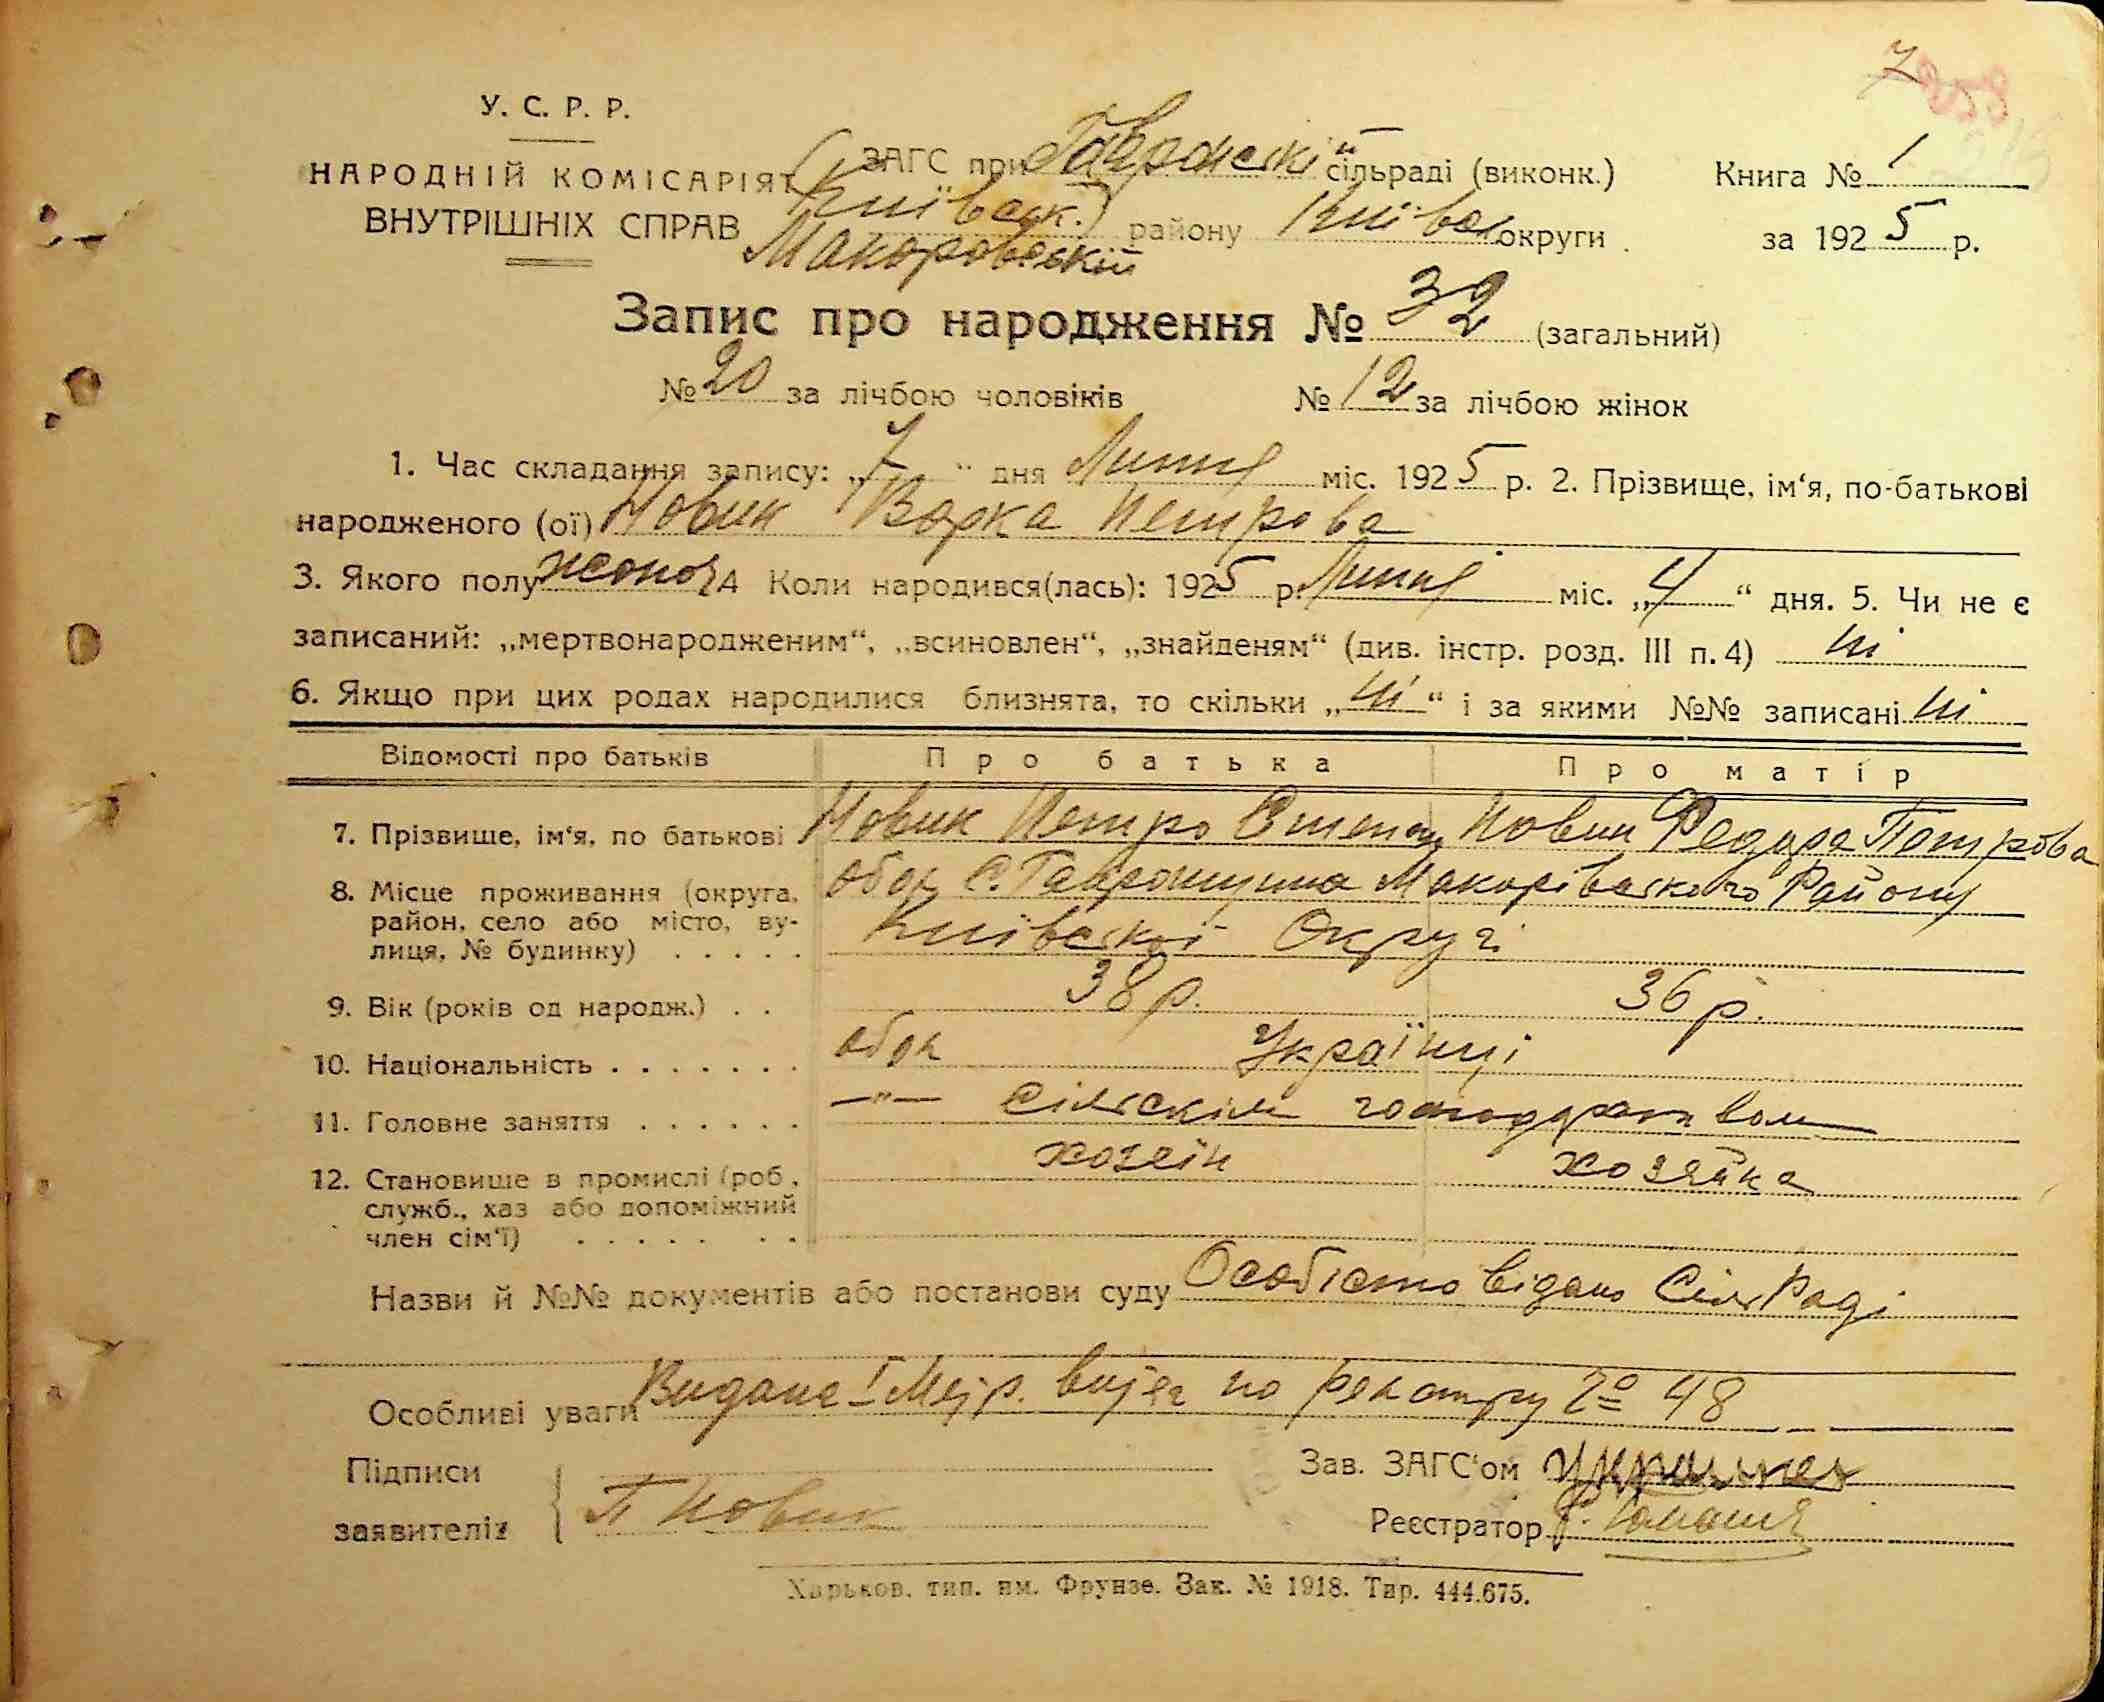 7
У. С. Р. Р.
НАРОДНІЙ КОМІСАРІЯТ ЗАГС при сільраді (виконк.) Книга № 1
ВНУТРІШНІХ СПРАВ району округи за 1925 р.
Макоровский
Запис про народження № 32 (загальний)
№ 20 за лічбою чоловіків № 12 за лічбою жінок
1. Час складання запису: „7“ дня Липня міс. 1925 р. 2. Прізвище, ім‘я, по-батькові
народженого (ої) Новик Варка Петрова
3. Якого полу жоноч 4 Коли народився(лась): 1925 р. Липня міс. „4“ дня. 5. Чи не є
записаний: „мертвонародженим“, „всиновлен“, „знайденям“ (див. інстр. розд. III п. 4) ні
6. Якщо при цих родах народилися близнята, то скільки „ні“ і за якими №№ записані ні
Відомості про батьків Про батька Про матір
7. Прізвище, ім‘я, по батькові Новик Петро Степан Новик Федора Петрова
8. Місце проживання (округа, обоє С. Гавронщина Макарівського Району
район, село або місто, ву- Київської Округі
лиця, № будинку)
9. Вік (років од народж.) 38 р. 36 р.
10. Національність обоє Українці
11. Головне заняття —"— сільскім господарством
12. Становище в промислі (роб., хозяїн хозяйка
служб., хаз або допоміжний
член сім‘ї)
Назви й №№ документів або постанови суду Особісто відано СільРаді
Особливі уваги 48
Підписи Зав. ЗАГС‘ом
заявителів П Новик Реєстратор
Харьков. тип. им. Фрунзе. Зак. № 1918. Тир. 444.675.